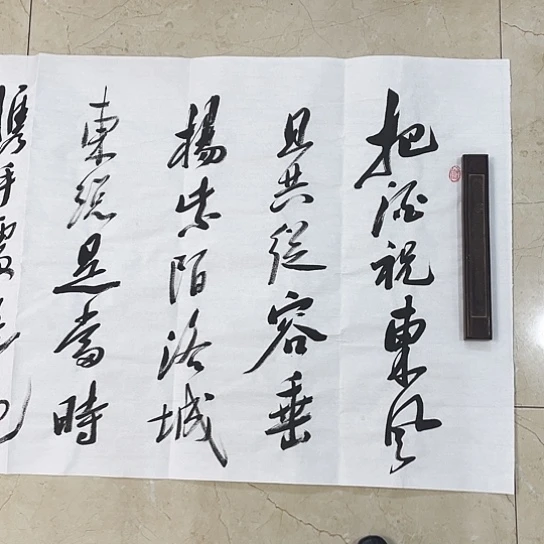 把酒祝東風
且共從容垂
楊紫陌洛城
東總是當時
攜手處